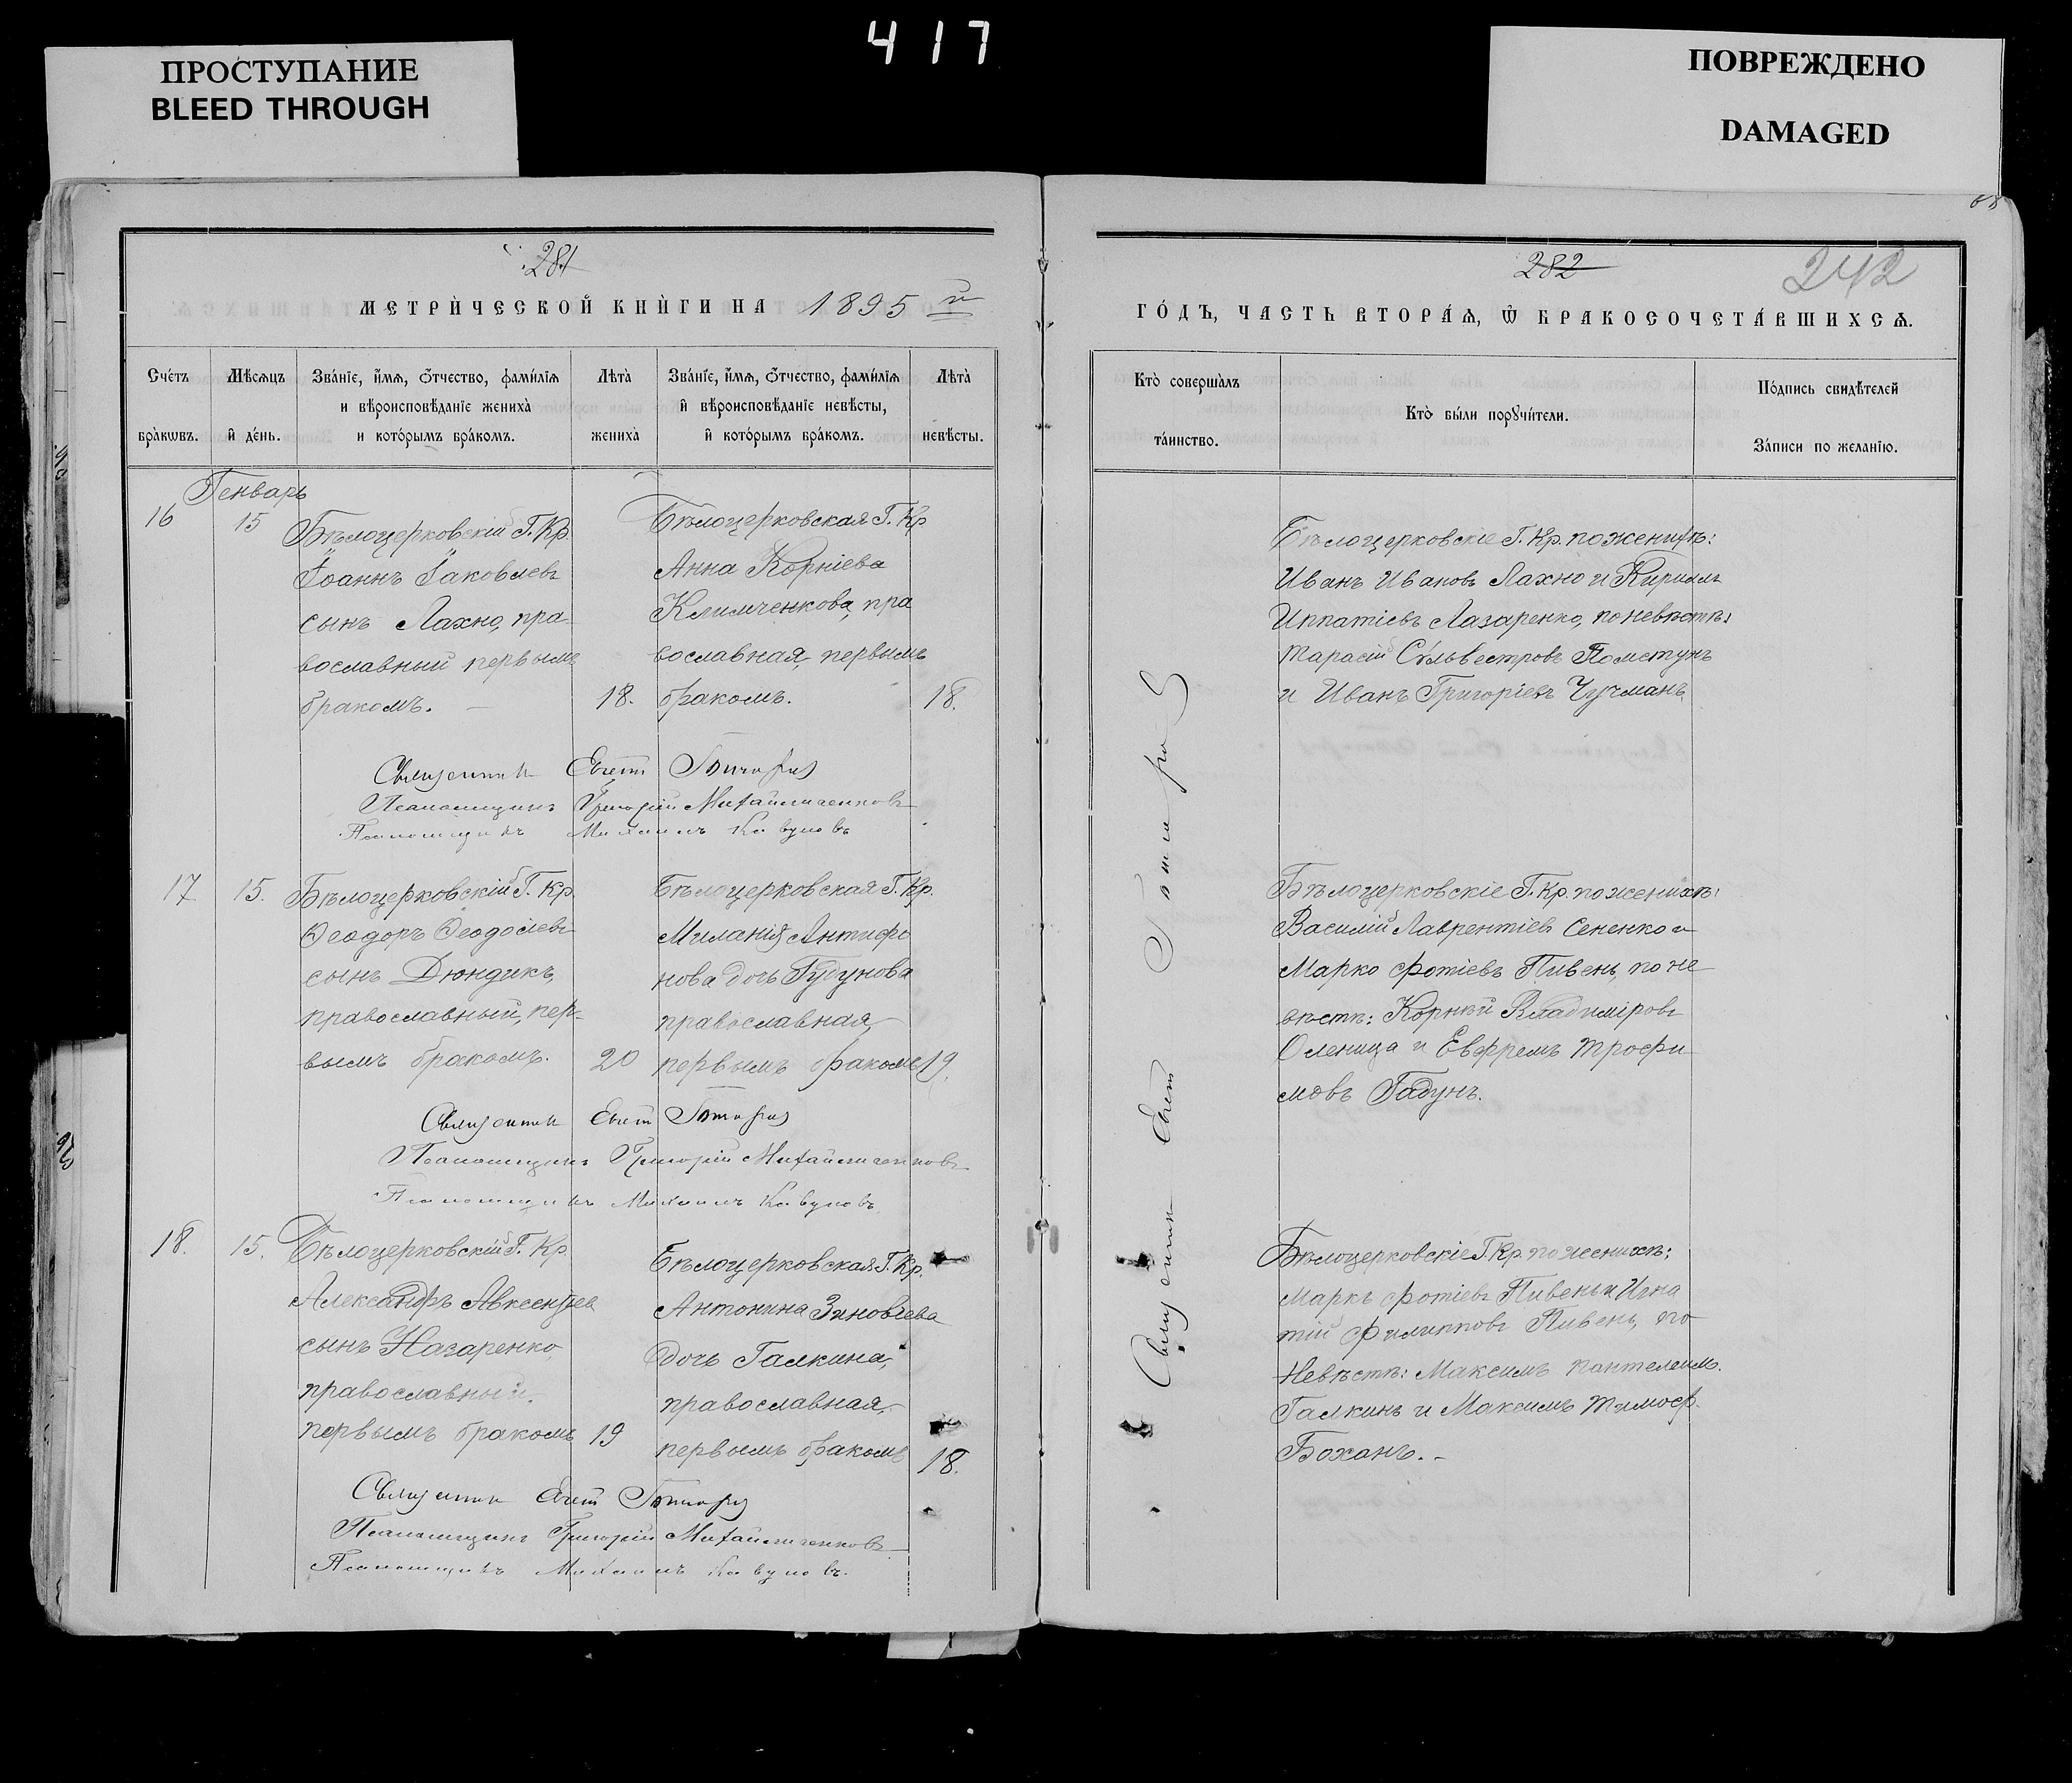 417
ПРОСТУПАНИЕ
BLEED THROUGH
ПОВРЕЖДЕНО
DAMAGED
281
МЕТРИ́ЧЕСКОЙ КНИ́ГИ НА 1895 й
Сче́тъ бра́кωвъ.
Мѣ́сѧцъ и҆ де́нь.
Зва́нїе, и҆́мѧ, ѻ҆́тчество, фами́лїѧ
и вѣроисповѣ́данїе жениха̀
и кото́рымъ бра́комъ.
Лѣта̀ жениха̀
Зва́нїе, и҆́мѧ, ѻ҆́тчество, фами́лїѧ
и҆ вѣроисповѣ́данїе невѣ́сты,
и҆ кото́рымъ бра́комъ.
Лѣта̀ невѣ́сты.
Генварь
16
15
Бѣлоцерковскій Г. Кр.
Іоаннъ Іаковлевъ
сынъ Лахно, пра-
вославный первымъ
бракомъ.
18.
Бѣлоцерковская Г. Кр
Анна Корніева
Климченкова, пра
вославная первымъ
бракомъ.
18.
Псаломщикъ Григорій Михайличенковъ
Псаломщикъ Михаилъ Кавуновъ
17
15.
Бѣлоцерковскій Г. Кр.
Ѳеодоръ Ѳеодосіевъ
сынъ Дюндикъ,
православный, пер-
вымъ бракомъ.
20
Бѣлоцерковская Г. Кр.
Миланія Антифо
нова дочь Гудунова
православная,
первымъ бракомъ
19.
Псаломщикъ Григорій Михайличенковъ
Псаломщикъ Михаилъ Кавуновъ
18.
15.
Бѣлоцерковскій Г. Кр.
Александръ Авксентіев
сынъ Назаренко
православный.
первымъ бракомъ
19
Бѣлоцерковская Г. Кр.
Антонина Зиновіева
дочь Галкина,
православная,
первымъ бракомъ
18.
Псаломщикъ Григорій Михайличенковъ
Псаломщикъ Михаилъ Кавуновъ.
282
242
ГО́ДЪ, ЧАСТЬ ВТОРА́Ѧ, Ѽ БРАКОСОЧЕТА́ВШИХСѦ.
Кто̀ соверша́лъ
та́инство.
Кто̀ бы́ли порꙋчи́тели.
По́дпись свидѣ́телей
За́писи по жела́нїю.
Бѣлоцерковскіе Г. Кр. по женихѣ:
Иванъ Ивановъ Лахно и Кириллъ
Ипатіевъ Лазаренко, по невѣстѣ:
Тарасій Сильвестровъ Пометунъ
и Иванъ Григоріевъ Чучманъ
Бѣлоцерковскіе Г. Кр. по женихѣ:
Василій Лаврентіев Сененко и
Марко Фотіевъ Пивень, по не
вѣстѣ: Корній Владиміровъ
Оленица и Евфремъ Трофи
мовъ Гадунъ.
Бѣлоцерковскіе Г. Кр. по женихѣ:
Маркъ Фотіевъ Пивень и Игна
тій Филипповъ Пивень, по
Невѣстѣ: Максимъ Пантелеим.
Галкинъ и Максимъ Тимоф.
Боханъ.